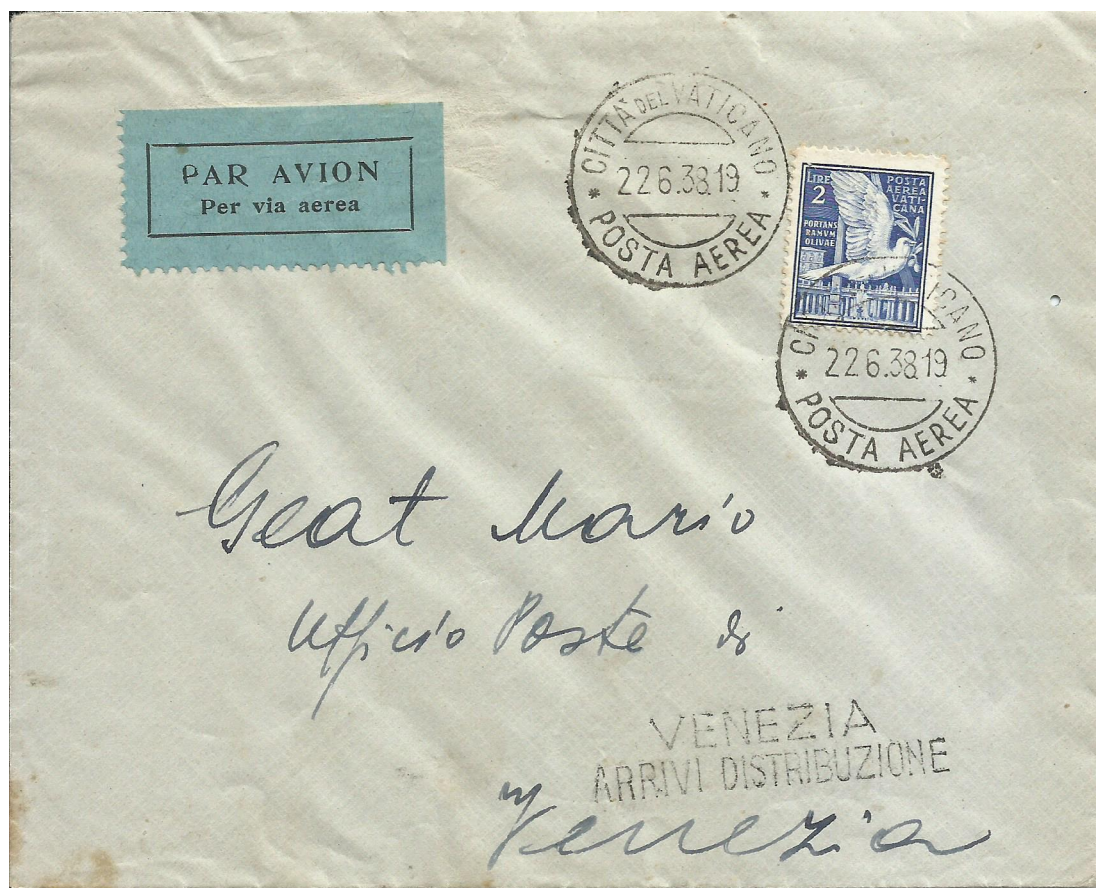 PAR AVION
Per via aerea
CITTÀ DEL VATICANO
22.6.38.19
* POSTA AEREA *
LIRE
2
POSTA
AEREA
VATI-
CANA
PORTANS
RAMVM
OLIVAE
CI ICANO
22.6.38.19
* POSTA AEREA *
Geat Mario
Ufficio Poste di
VENEZIA
ARRIVI DISTRIBUZIONE
Venezia